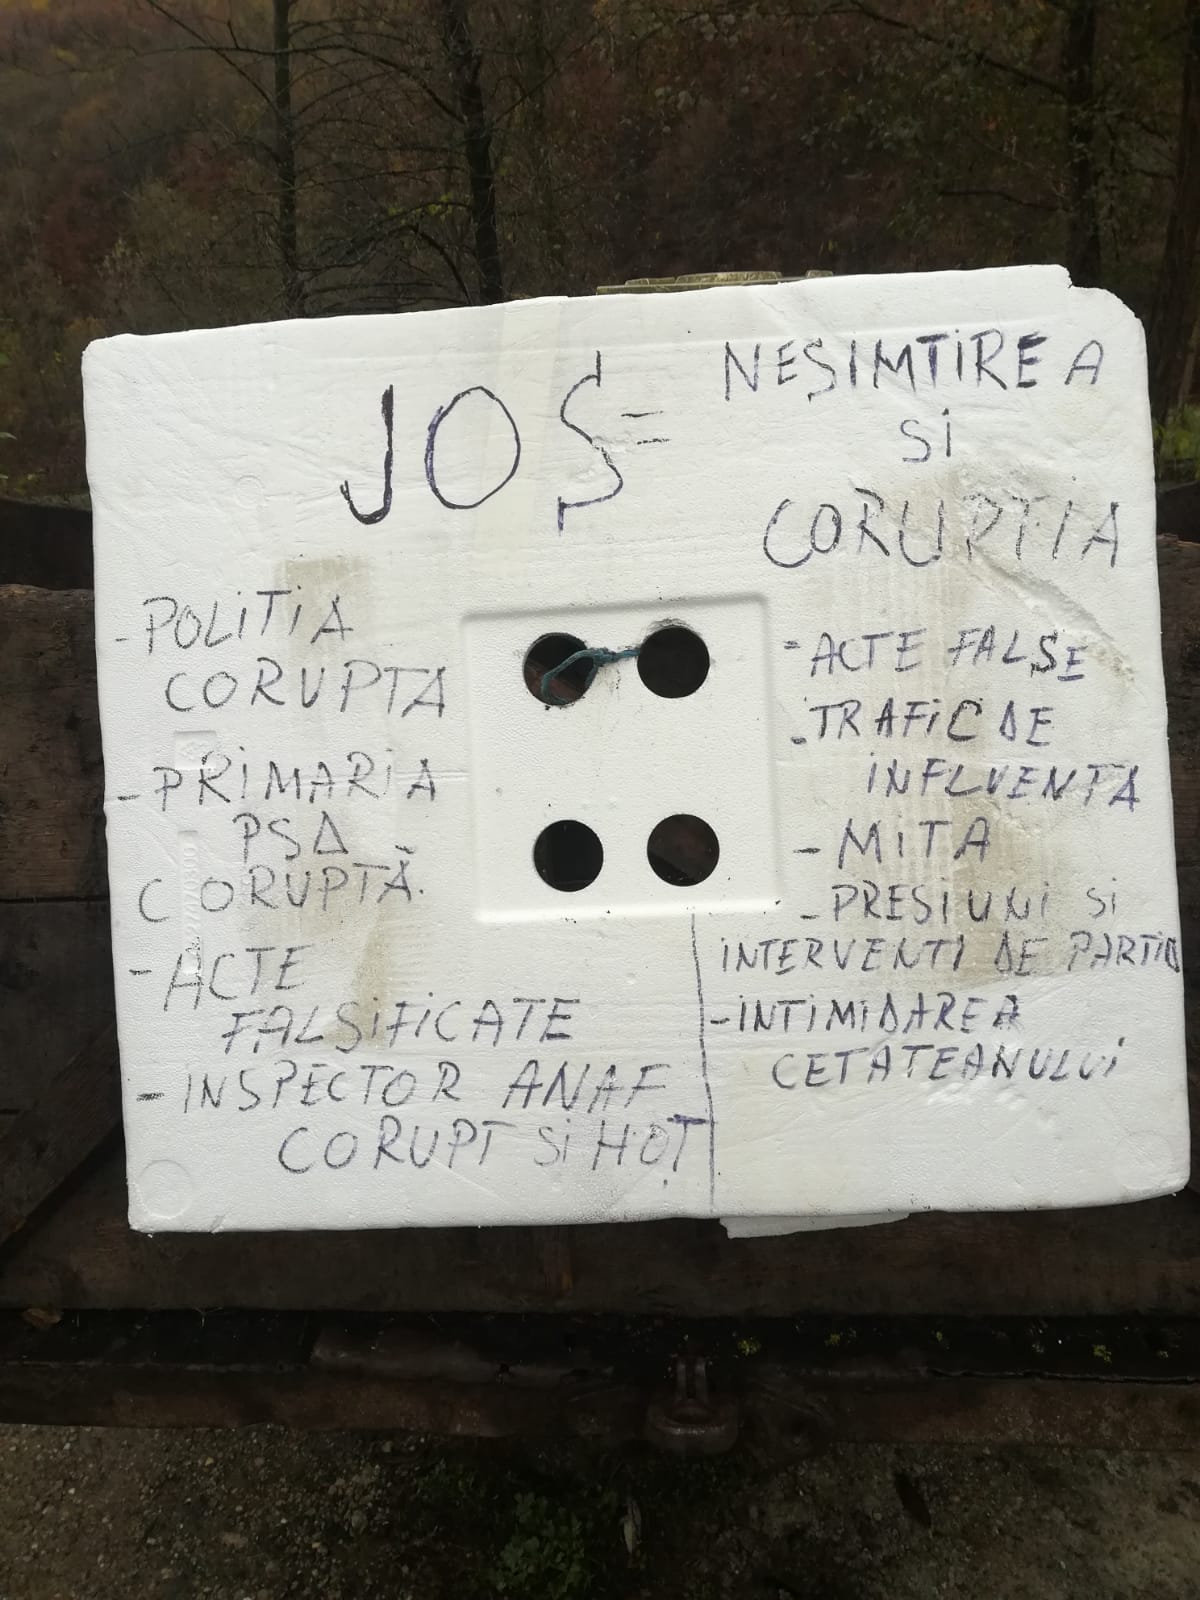 JOS =
NEȘIMTIREA
SI
CORUPTIA
- POLITIA
CORUPTA
- PRIMARIA
PSD
CORUPTĂ.
- ACTE
FALSIFICATE
- INSPECTOR ANAF
CORUPT SI HOT
= ACTE FALSE
- TRAFIC DE
INFLUENTA
- MITA
- PRESIUNI SI
INTERVENTI DE PARTID
- INTIMIDAREA
CETATEANULUI